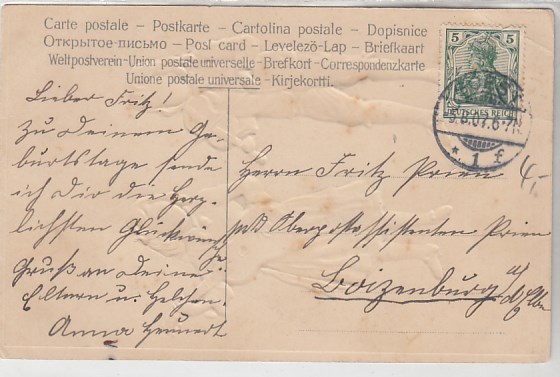 Carte postale - Postkarte - Cartolina postale - Dopisnice
Открытое письмо - Post card - Levelező-Lap - Briefkaart
Weltpostverein - Union postale universelle - Brefkort - Correspondenzkarte
Unione postale universale - Kirjekortti.
5 5
DEUTSCHES REICH
9.8.07.6-7N.
* 1 f
Lieber Fritz!
Zu Deinem Ge-
burtstage sende
ich Dir die herz-
lichsten Glückwünsche
Gruß an Deine
Eltern u. Helchen.
Anna Heunert
Herrn Fritz Prien
pr. Adr. Oberpostassistenten Prien
Boizenburg
a/d. Elbe
4,-